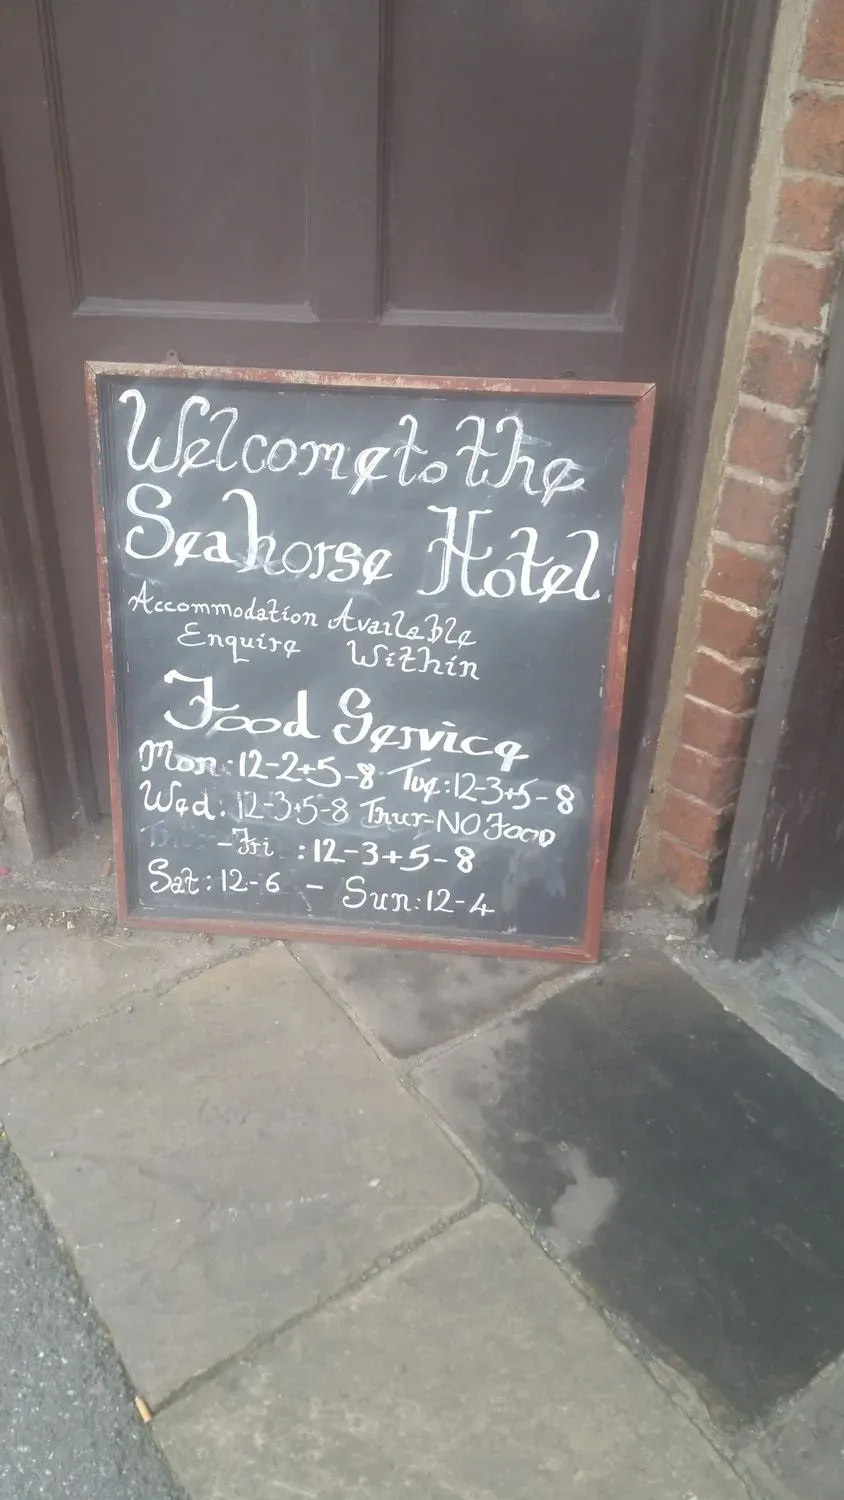 Welcome to the
Seahorse Hotel
Accommodation Available
Enquire Within
Food Service
Mon: 12-2+5-8 Tue: 12-3+5-8
Wed: 12-3+5-8 Thur-NO FOOD
-Fri : 12-3+5-8
Sat: 12-6 - Sun: 12-4